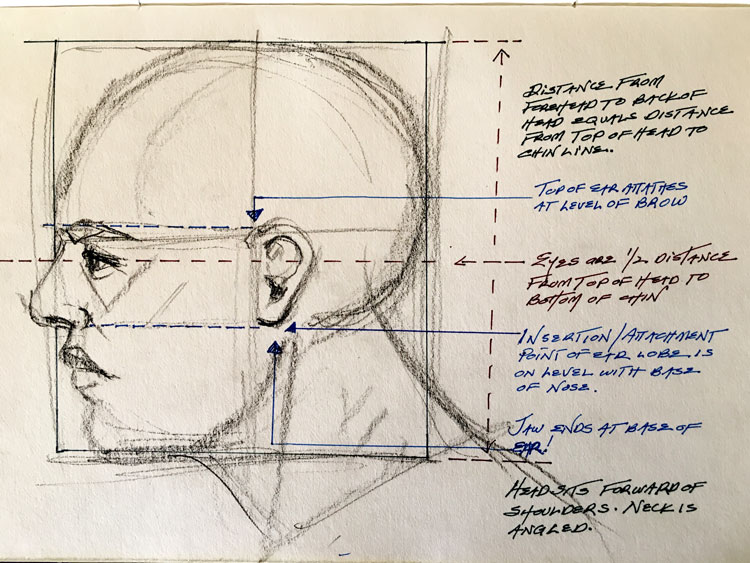 DISTANCE FROM
FOREHEAD TO BACK OF
HEAD EQUALS DISTANCE
FROM TOP OF HEAD TO
CHIN LINE.
TOP OF EAR ATTATHES
AT LEVEL OF BROW
EYES ARE 1/2 DISTANCE
FROM TOP OF HEAD TO
BOTTOM OF CHIN
INSERTION/ATTACHMENT
POINT OF EAR LOBE IS
ON LEVEL WITH BASE
OF NOSE.
JAW ENDS AT BASE OF
EAR!
HEAD SITS FORWARD OF
SHOULDERS. NECK IS
ANGLED.